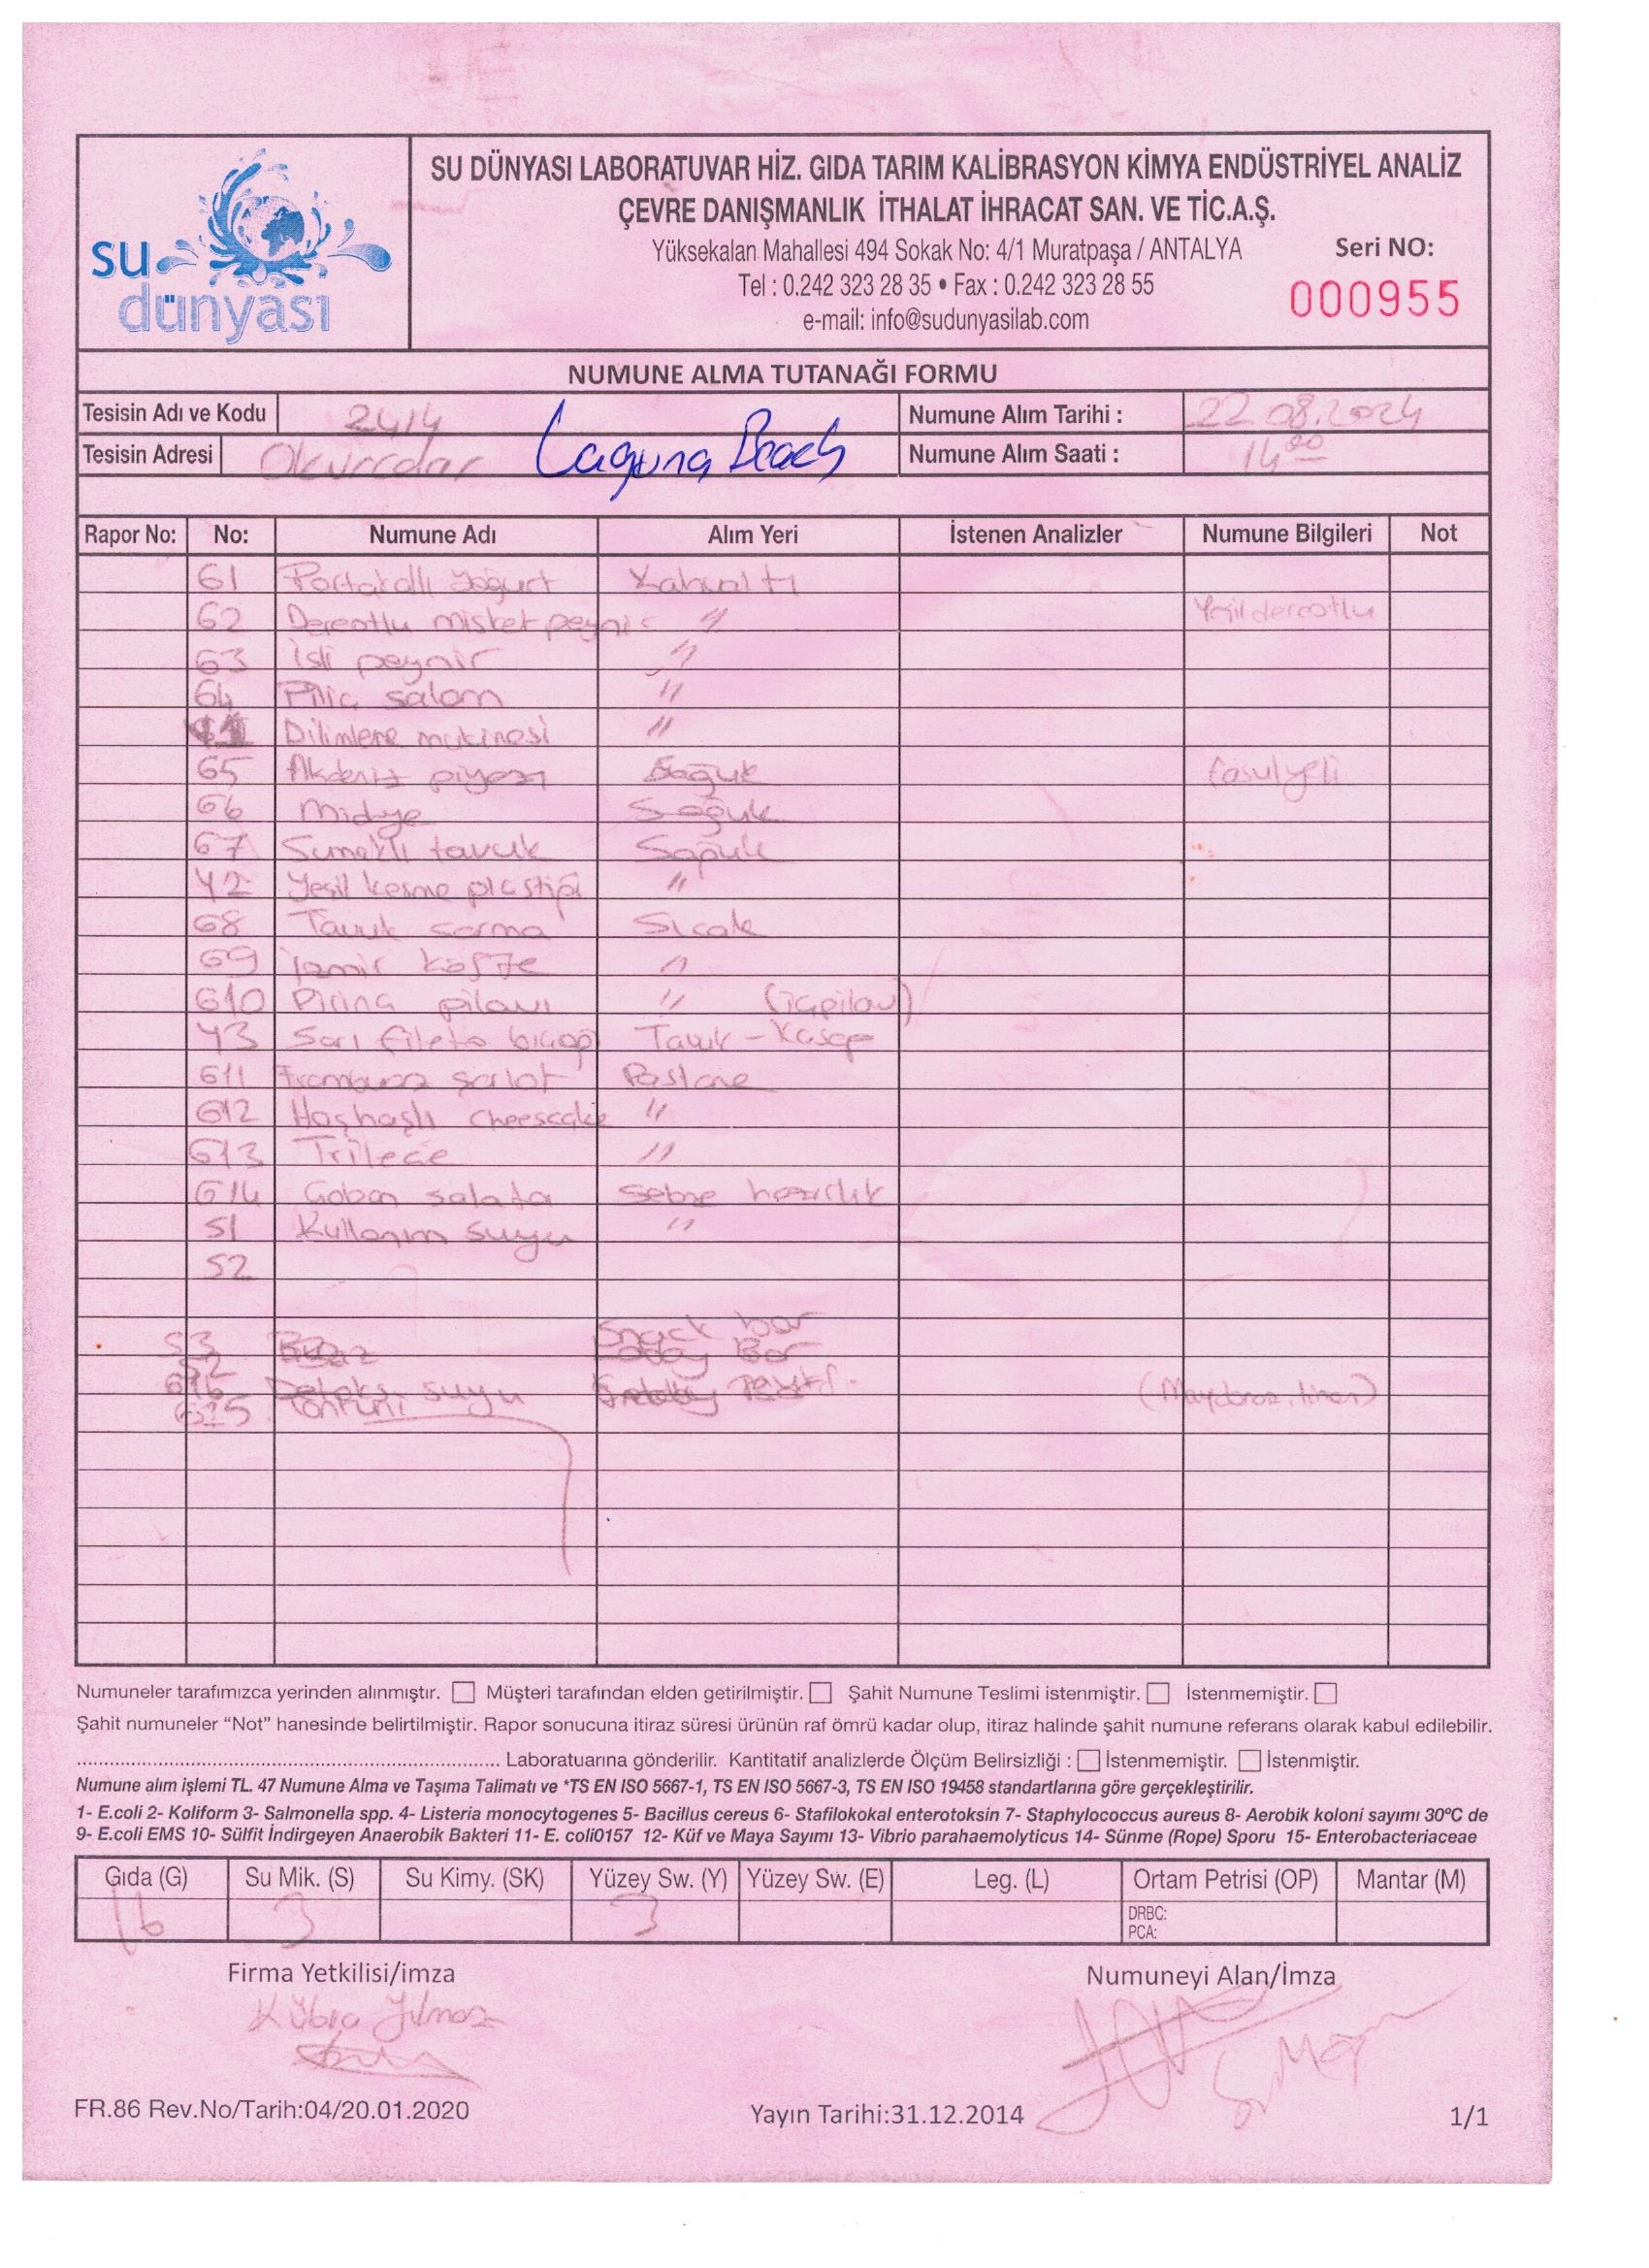 su
dünyası
SU DÜNYASI LABORATUVAR HİZ. GIDA TARIM KALİBRASYON KİMYA ENDÜSTRİYEL ANALİZ
ÇEVRE DANIŞMANLIK İTHALAT İHRACAT SAN. VE TİC.A.Ş.
Yüksekalan Mahallesi 494 Sokak No: 4/1 Muratpaşa / ANTALYA
Seri NO:
Tel : 0.242 323 28 35 • Fax : 0.242 323 28 55
000955
e-mail: info@sudunyasilab.com
NUMUNE ALMA TUTANAĞI FORMU
Tesisin Adı ve Kodu 2414 Numune Alım Tarihi : 22.08.2024
Tesisin Adresi Okurcalar Laguna Beach Numune Alım Saati : 14 00
Rapor No: No: Numune Adı Alım Yeri İstenen Analizler Numune Bilgileri Not
G1 Portakallı yoğurt Kahvaltı
G2 Dereotlu misket peynir " Yeşil dereotlu
G3 isli peynir "
G4 Piliç salam "
Dilimleme makinesi "
G5 Akdeniz piyazı Soğuk fasulyeli
G6 Midye Soğuk
G7 Sumaklı tavuk Soğuk
Y2 Yeşil kesme plastiği "
G8 Tavuk sarma Sıcak
G9 İzmir köfte "
G10 Pirinç pilavı " (içpilav)
Y3 Sarı fileto bıçağı Tavuk - Kasap
G11 Frambuaz şarlot Pastane
G12 Haşhaşlı cheescake "
G13 Trileçe "
G14 Çoban salata Sebze hazırlık
S1 Kullanım suyu "
S2
S3 Snack bar
S2 Buz Lobby Bar
G16 Detoks suyu (Maydanoz, limon)
G15
Numuneler tarafımızca yerinden alınmıştır. Müşteri tarafından elden getirilmiştir. Şahit Numune Teslimi istenmiştir. İstenmemiştir.
Şahit numuneler “Not” hanesinde belirtilmiştir. Rapor sonucuna itiraz süresi ürünün raf ömrü kadar olup, itiraz halinde şahit numune referans olarak kabul edilebilir.
Laboratuarına gönderilir. Kantitatif analizlerde Ölçüm Belirsizliği : İstenmemiştir. İstenmiştir.
Numune alım işlemi TL. 47 Numune Alma ve Taşıma Talimatı ve *TS EN ISO 5667-1, TS EN ISO 5667-3, TS EN ISO 19458 standartlarına göre gerçekleştirilir.
1- E.coli 2- Koliform 3- Salmonella spp. 4- Listeria monocytogenes 5- Bacillus cereus 6- Stafilokokal enterotoksin 7- Staphylococcus aureus 8- Aerobik koloni sayımı 30ºC de
9- E.coli EMS 10- Sülfit İndirgeyen Anaerobik Bakteri 11- E. coli0157 12- Küf ve Maya Sayımı 13- Vibrio parahaemolyticus 14- Sünme (Rope) Sporu 15- Enterobacteriaceae
Gıda (G) Su Mik. (S) Su Kimy. (SK) Yüzey Sw. (Y) Yüzey Sw. (E) Leg. (L) Ortam Petrisi (OP) Mantar (M)
16 3 3 DRBC:
PCA:
Firma Yetkilisi/imza Numuneyi Alan/İmza
Kübra Yılmaz
FR.86 Rev.No/Tarih:04/20.01.2020 Yayın Tarihi:31.12.2014 1/1